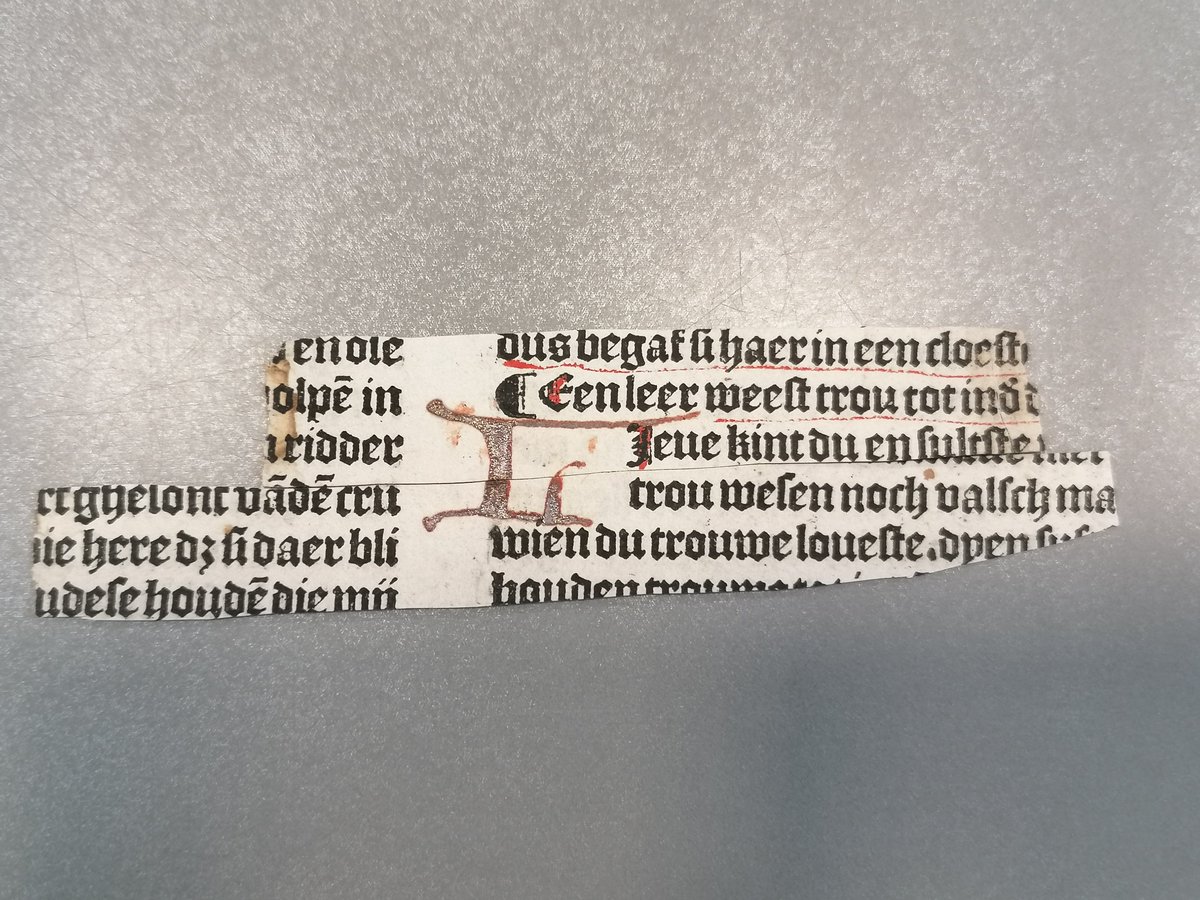 en die
olpē in
ridder
rt ghelont vādē cru
ie here dz si daer bli
udese houdē die mij
dus begaf si haer in een cloest
¶ Een leer weest trou tot ind
L Ieue kint du en sultste niet
trou wesen noch valsch ma
wien du trouwe loueste. dyen
houden trouwe